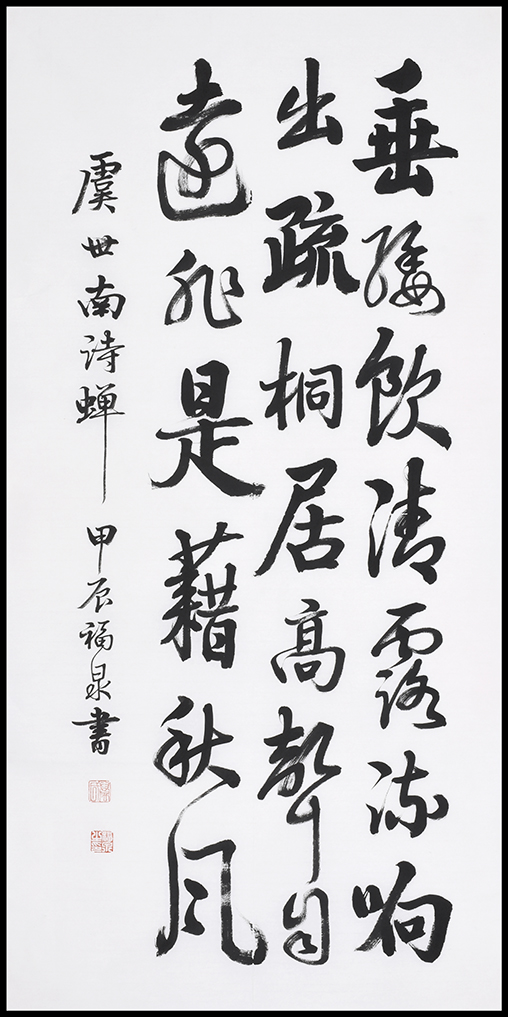 垂緌飲清露流响
出疏桐居高聲自
遠非是藉秋风
虞世南诗蝉 甲辰福泉書